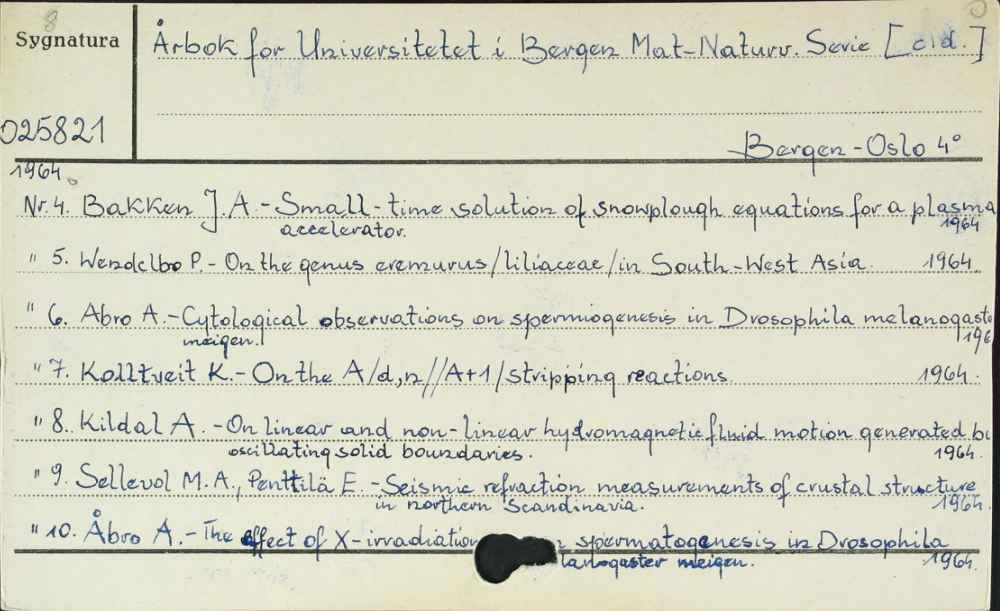 8
Sygnatura
Årbok for Universitetet i Bergen Mat-Naturv. Serie [c.d.]
025821
Bergen-Oslo 4°
1964
Nr. 4. Bakken J. A. - Small-time solution of snowplough equations for a plasma
accelerator. 1964
" 5. Wendelbo P. - On the genus eremurus /liliaceae/ in South-West Asia. 1964.
" 6. Abro A. - Cytological observations on spermiogenesis in Drosophila melanogaste
meigen. 196
" 7. Kolltveit K. - On the A/d,n//A+1/ stripping reactions. 1964.
" 8. Kildal A. - On linear and non-linear hydromagnetic fluid motion generated b
oscillating solid boundaries. 1964.
" 9. Sellevol M. A., Penttilä E. - Seismic refraction measurements of crustal structure
in northern Scandinavia. 1964.
" 10. Åbro A. - The effect of X-irradiation spermatogenesis in Drosophila
lanogaster meigen. 1964.